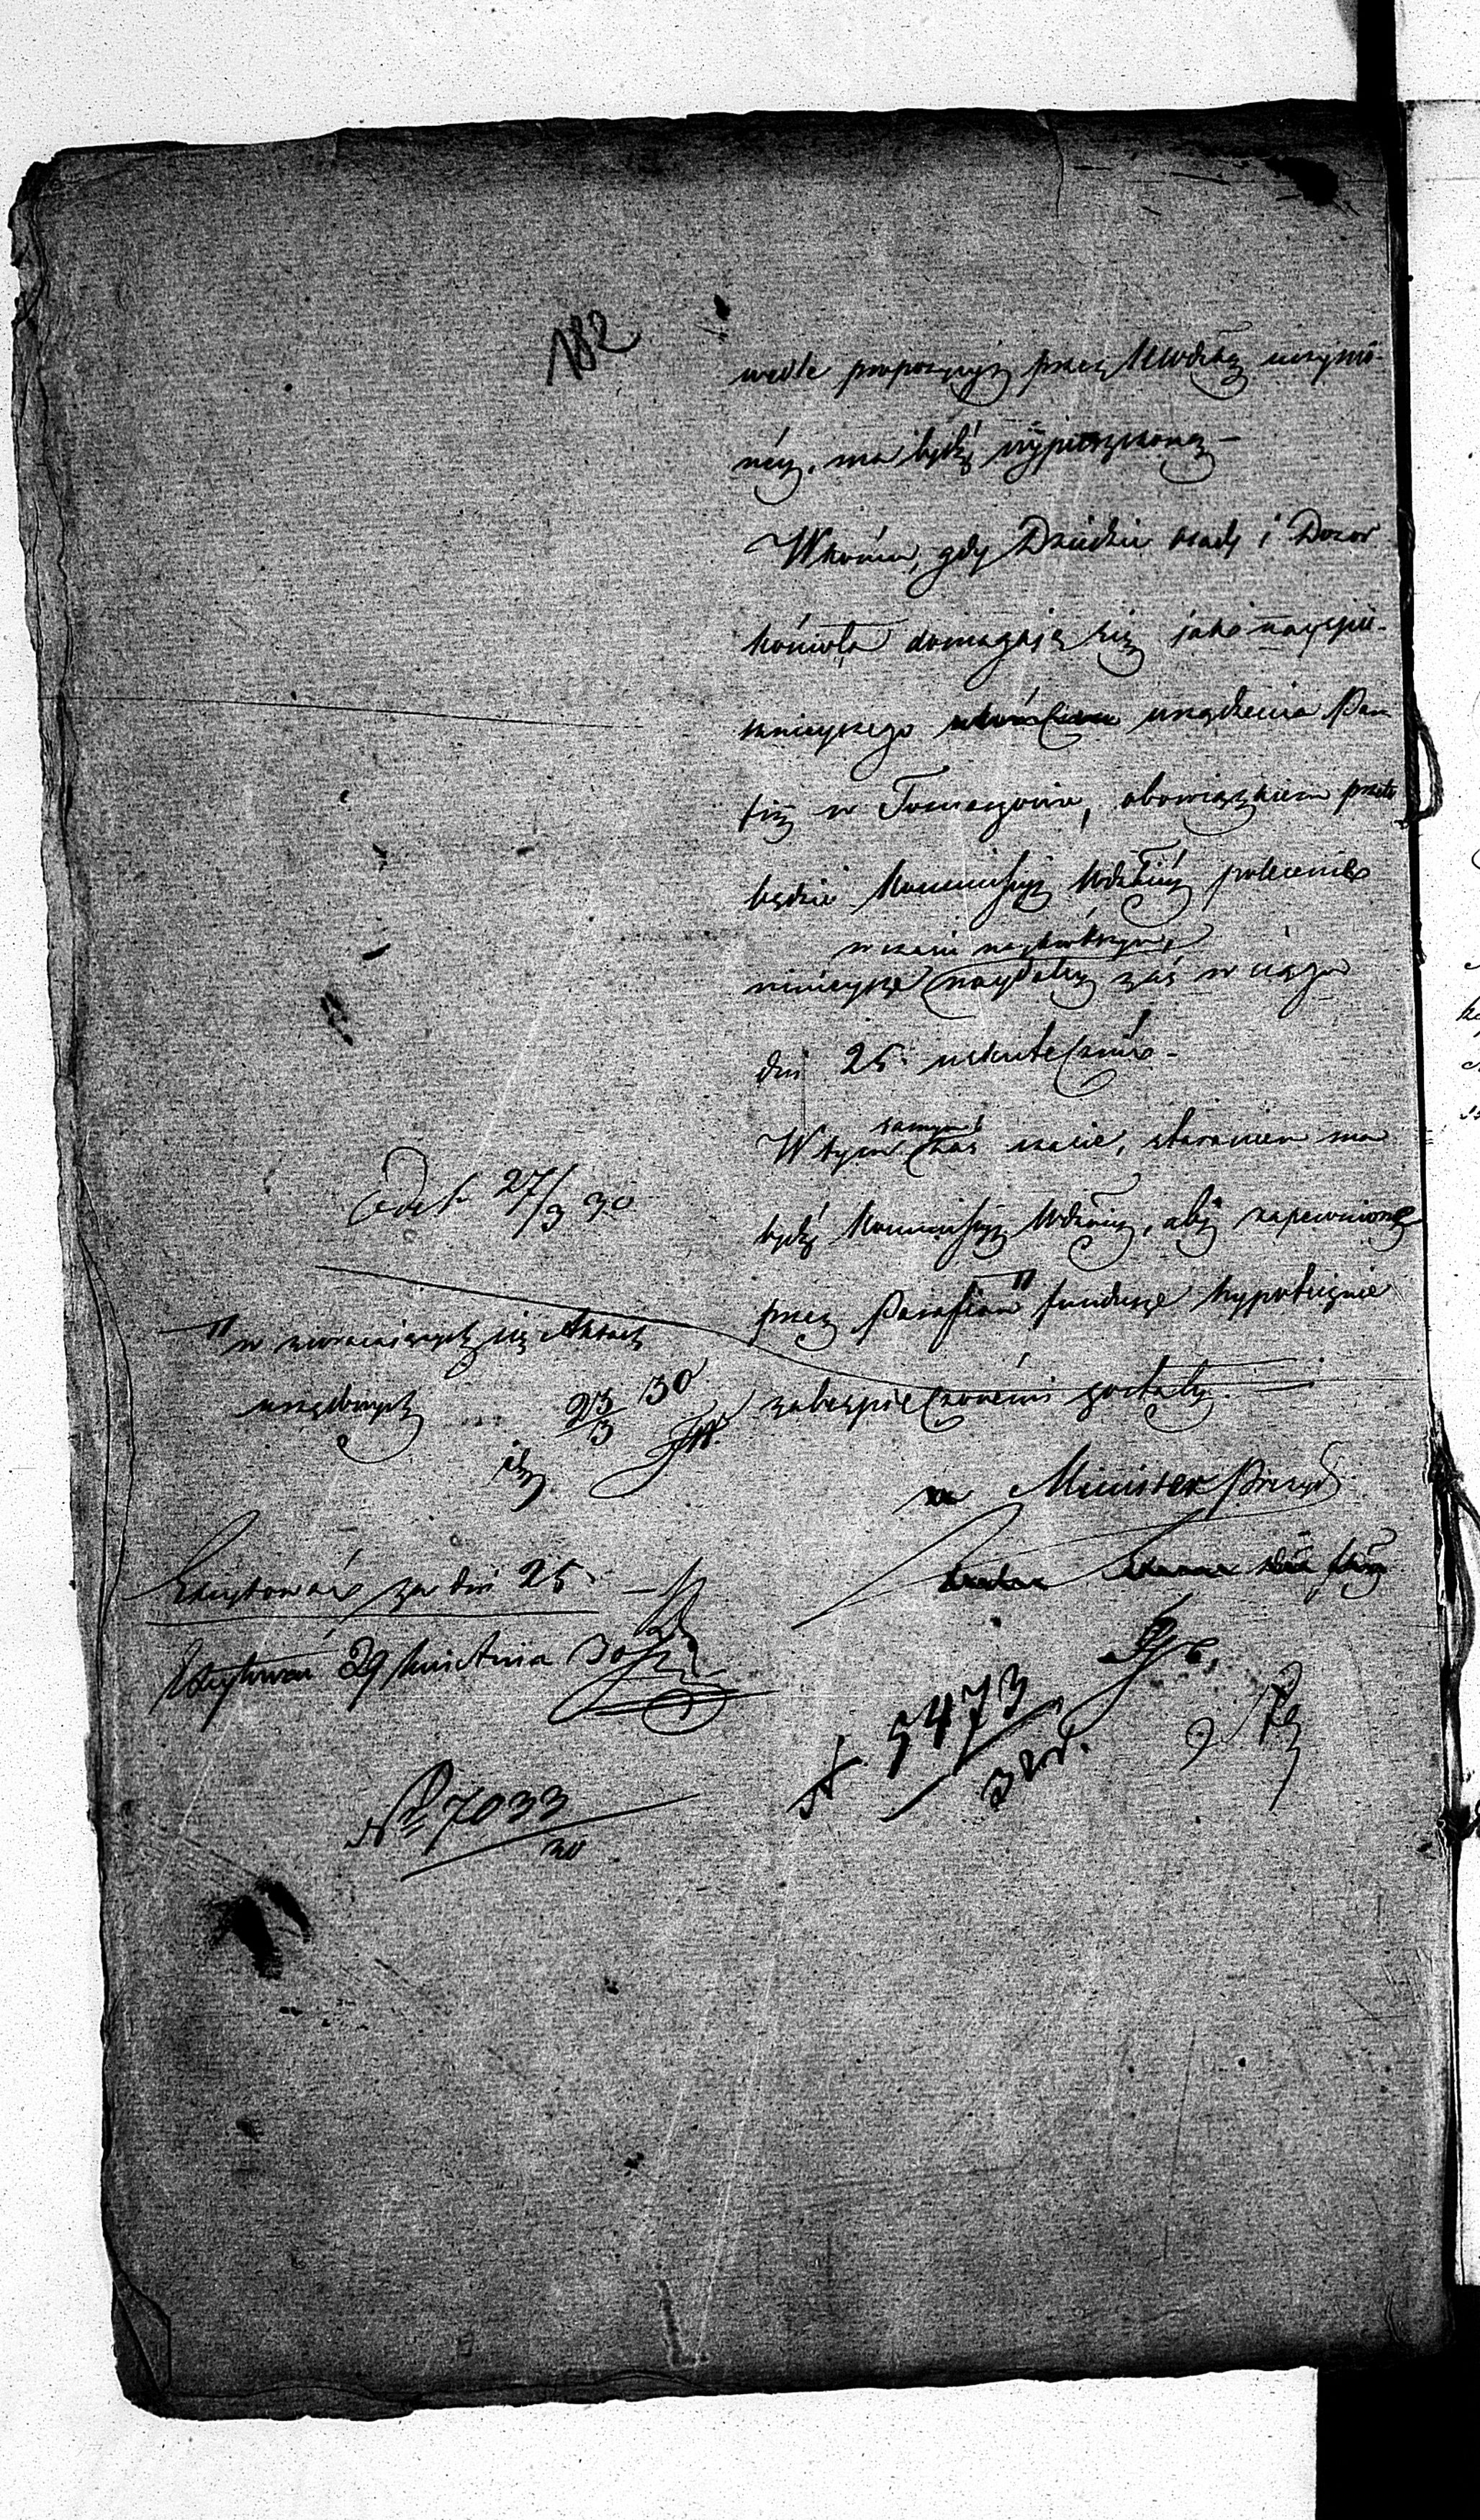 182
wedle propozycyi przez Wwdzką uczynio-
néy, ma bydź wyjaśnioną –
Wkońcu, gdy Dziedzic osady i Dozor
kościoła domagają się jako nayspie-
sznieyszego urządzenia Para
fii w Tomaszowie, obowiązkiem przeto
będzie Kommissyi Wdzkiéy polecenie
w czasie naykrótszym,
ninieysze naydaléy zaś w ciągu
dni 25 uskutecznić –
samym
W tym zaś czasie, staraniem ma
bydź Kommissyi Wdzkiéy, aby zapewnione
przez Parafian fundusze hypotecznie
zabezpieczonemi zostały. –
Minister Prezyd
Odesł. 27/3 30
w zwracających się Aktach
urzędowych
23/3 30
Excytować za dni 25
Excytowan 29 kwietnia 30
№ 7033
30
5473